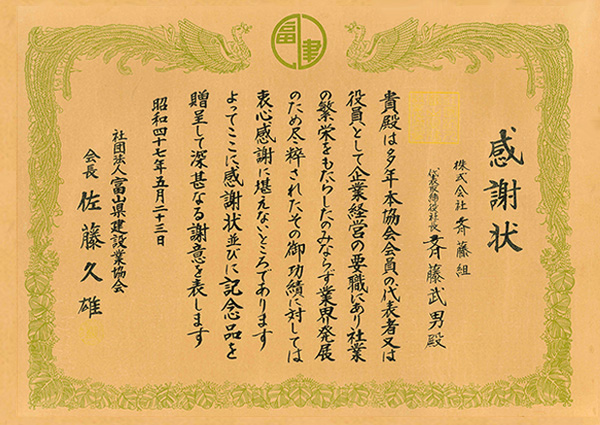 富建
感謝状
株式会社 斉藤組
代表取締役社長 斉藤武男殿
貴殿は多年本協会会員の代表者又は
役員として企業経営の要職にあり社業
の繁栄をもたらしたのみならず業界発展
のため尽粋されたその御功績に対しては
衷心感謝に堪えないところであります
よってここに感謝状並びに記念品を
贈呈して深甚なる謝意を表します
昭和四十七年五月二十三日
社団法人富山県建設業協会
会長 佐藤久雄